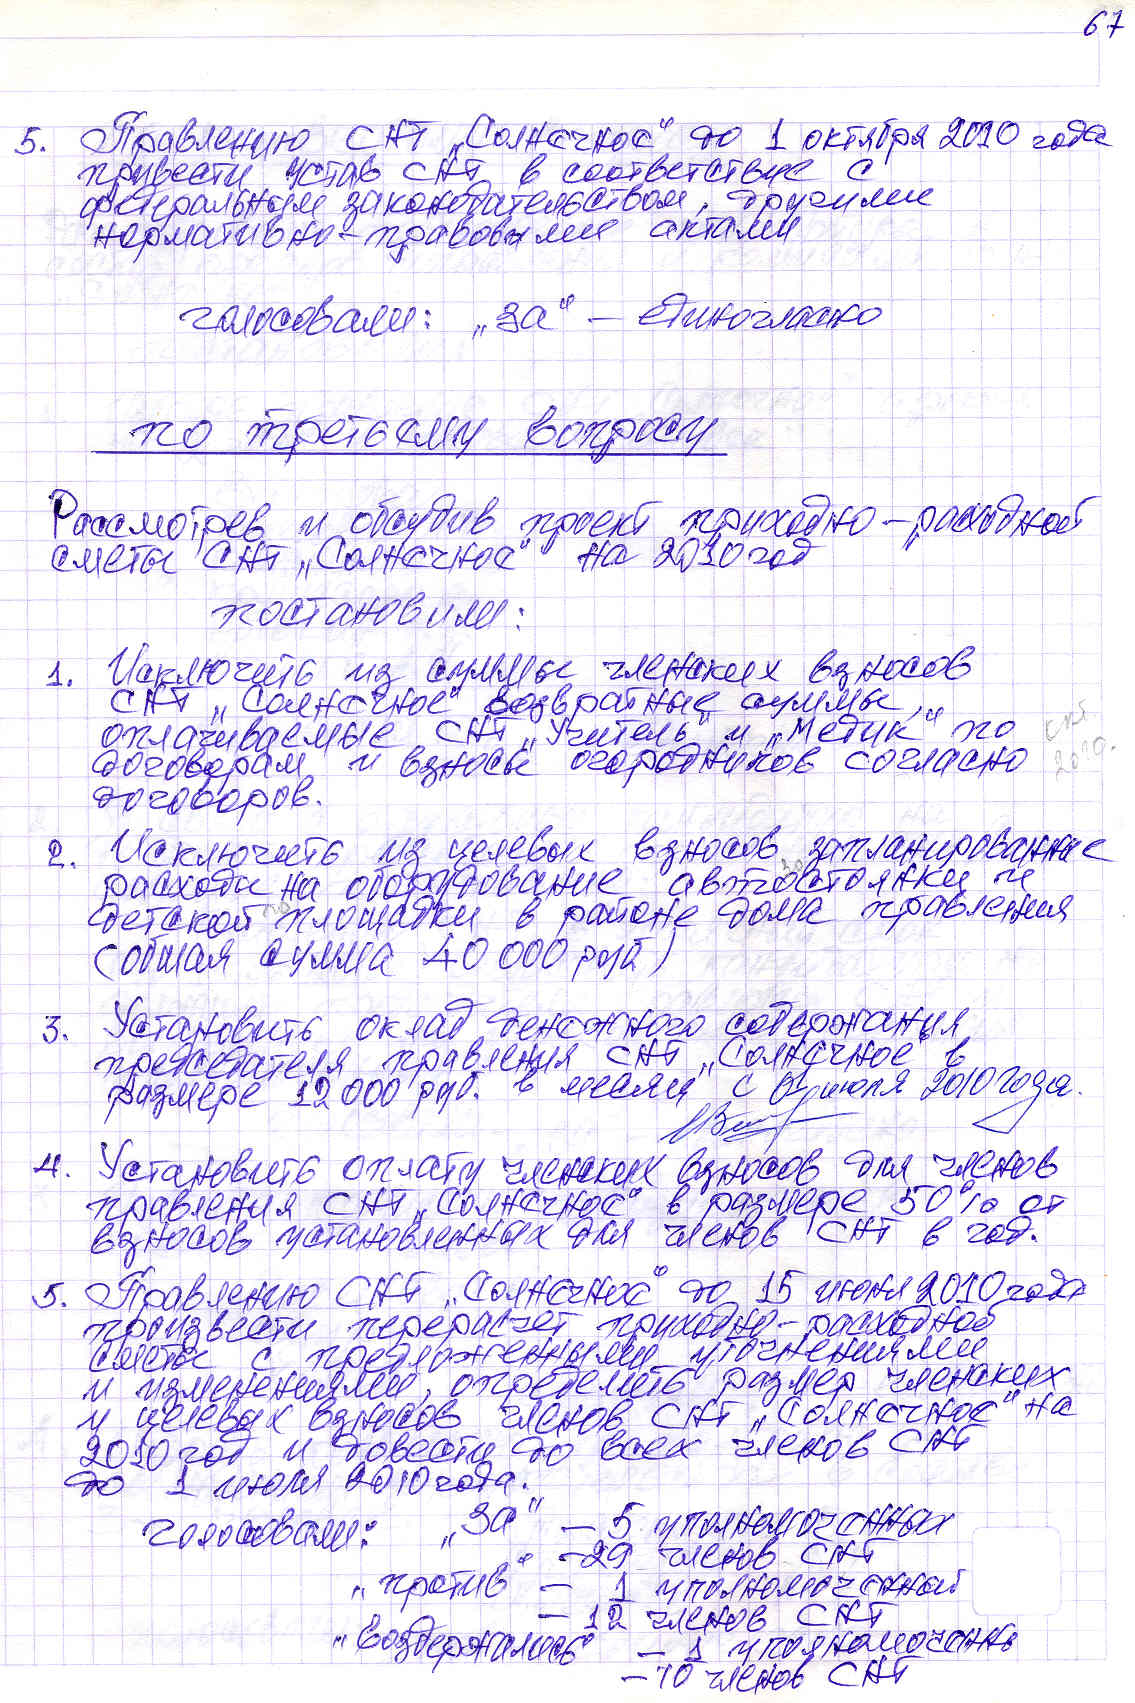 67
5. Правлению СНТ „Солнечное" до 1 октября 2010 года
привести устав СНТ в соответствие с
федеральным законодательством, другими
нормативно-правовыми актами
голосовали: „за" – единогласно
по третьему вопросу
Рассмотрев и обсудив проект приходно-расходной
сметы СНТ „Солнечное" на 2010 год
постановили:
1. Исключить из суммы членских взносов
СНТ „Солнечное" возвратные суммы,
оплачиваемые СНТ „Учитель" и „Медик" по
договорам и взносы огородников согласно
договоров.
2. Исключить из целевых взносов запланированные
расходы на оборудование автостоянки и
детской площадки в районе дома правления
(общая сумма 40 000 руб)
3. Установить оклад денежного содержания
председателя правления СНТ „Солнечное" в
размере 12 000 руб. в месяц с 01 июля 2010 года.
4. Установить оплату членских взносов для членов
правления СНТ „Солнечное" в размере 50% от
взносов установленных для членов СНТ в год.
5. Правлению СНТ „Солнечное" до 15 июня 2010 года
произвести перерасчет приходно-расходной
сметы с предложенными уточнениями
и изменениями, определить размер членских
и целевых взносов членов СНТ „Солнечное" на
2010 год и довести до всех членов СНТ
до 1 июля 2010 года.
голосовали: „За" – 5 уполномоченных
– 29 членов СНТ
„против" – 1 уполномоченный
– 12 членов СНТ
„воздержались" – 1 уполномоченн
– 10 членов СНТ